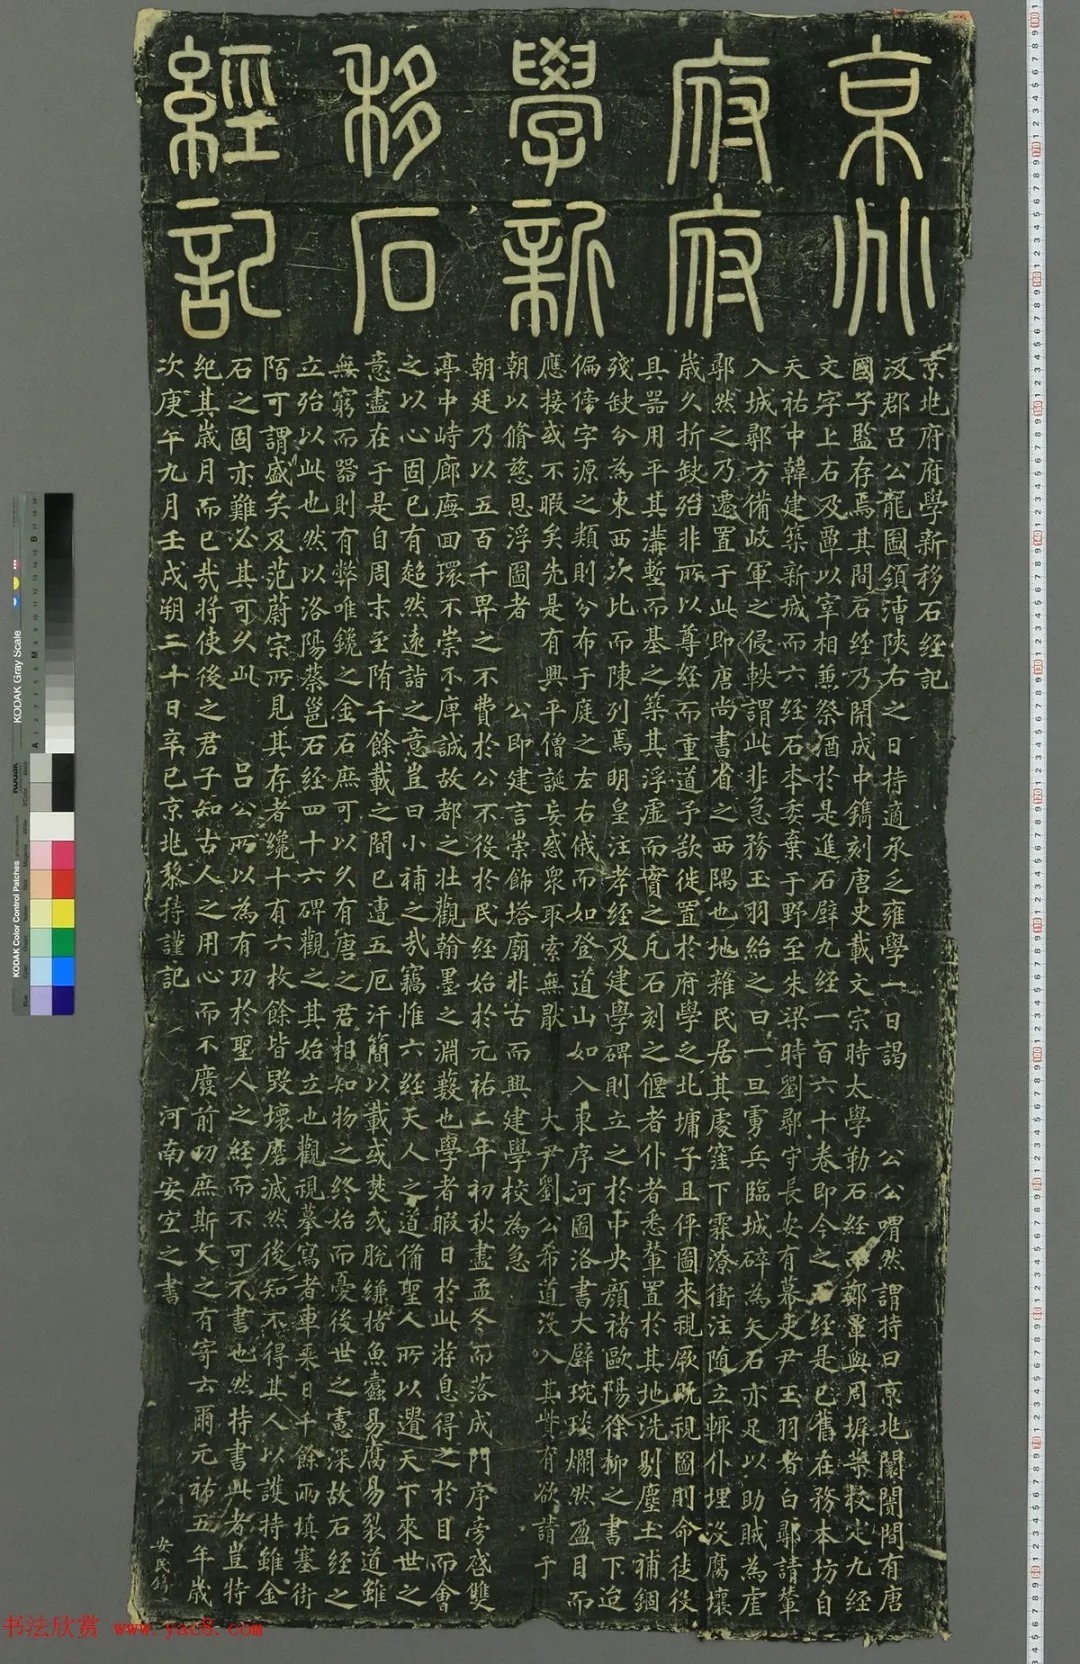 京兆
府府
學新
移石
經記
京兆府府學新移石經記
汲郡呂公龍圖領漕陝右之日持適承乏雍學一日謁 公公喟然謂持曰京兆闤闠間有唐
國子監存焉其間石經乃開成中鐫刻唐史載文宗時太學勒石經而鄭覃與周墀等校定九經
文字上石及覃以宰相兼祭酒於是進石壁九經一百六十卷即今之石經是已舊在務本坊自
天祐中韓建築新城而六經石本委棄于野至朱梁時劉鄩守長安有幕吏尹玉羽者白鄩請輦
入城鄩方備岐軍之侵軼謂此非急務玉羽紿之曰一旦虜兵臨城碎為矢石亦足以助賊為虐
鄩然之乃遷置于此即唐尚書省之西隅也地雜民居其處窪下霖潦衝注随立輒仆埋沒腐壞
歲久折缺殆非所以尊經而重道予欲徙置於府學之北墉子且伻圖來視厥既視圖則命徒役
具器用平其溝塹而基之築其浮虛而實之凡石刻之偃者仆者悉輦置於其地洗剔塵土補錮
殘缺分為東西次比而陳列焉明皇注孝經及建學碑則立之於中央顏褚歐陽徐柳之書下迨
偏傍字源之類則分布于庭之左右俄而如登道山如入東序河圖洛書大璧琬琰爛然盈目而
應接或不暇矣先是有興平僧誕妄惑眾取索無厭 大尹劉公希道沒入其貲有欲請于
朝以脩慈恩浮圖者 公即建言崇飾塔廟非古而興建學校為急
朝廷乃以五百千畀之不費於公不役於民經始於元祐二年初秋盡孟冬而落成門序旁啓雙
亭中峙廊廡回環不崇不庳誠故都之壯觀翰墨之淵藪也學者暇日於此游息得之於目而會
之以心固已有超然遠詣之意豈曰小補之哉竊惟六經天人之道備聖人所以遺天下來世之
意盡在于是自周末至隋千餘載之間已遭五厄汗簡以載或焚或脫縑楮魚蠹易腐易裂道雖
無窮而器則有弊唯鑱之金石庶可以久有唐之君相知物之終始而憂後世之慮深故石經之
立殆以此也然以洛陽蔡邕石經四十六碑觀之其始立也觀視摹寫者車乘日千餘兩填塞街
陌可謂盛矣及范蔚宗所見其存者纔十有六枚餘皆毀壞磨滅然後知不得其人以護持雖金
石之固亦難必其可久此 呂公所以為有功於聖人之經而不可不書也然持書此者豈特
紀其歲月而已哉將使後之君子知古人之用心而不廢前功庶斯文之有寄云爾元祐五年歲
次庚午九月壬戌朔二十日辛巳京兆黎持謹記 河南安宜之書
安民鐫
书法欣赏 www.yac8.com
KODAK Gray Scale
KODAK Color Control Patches